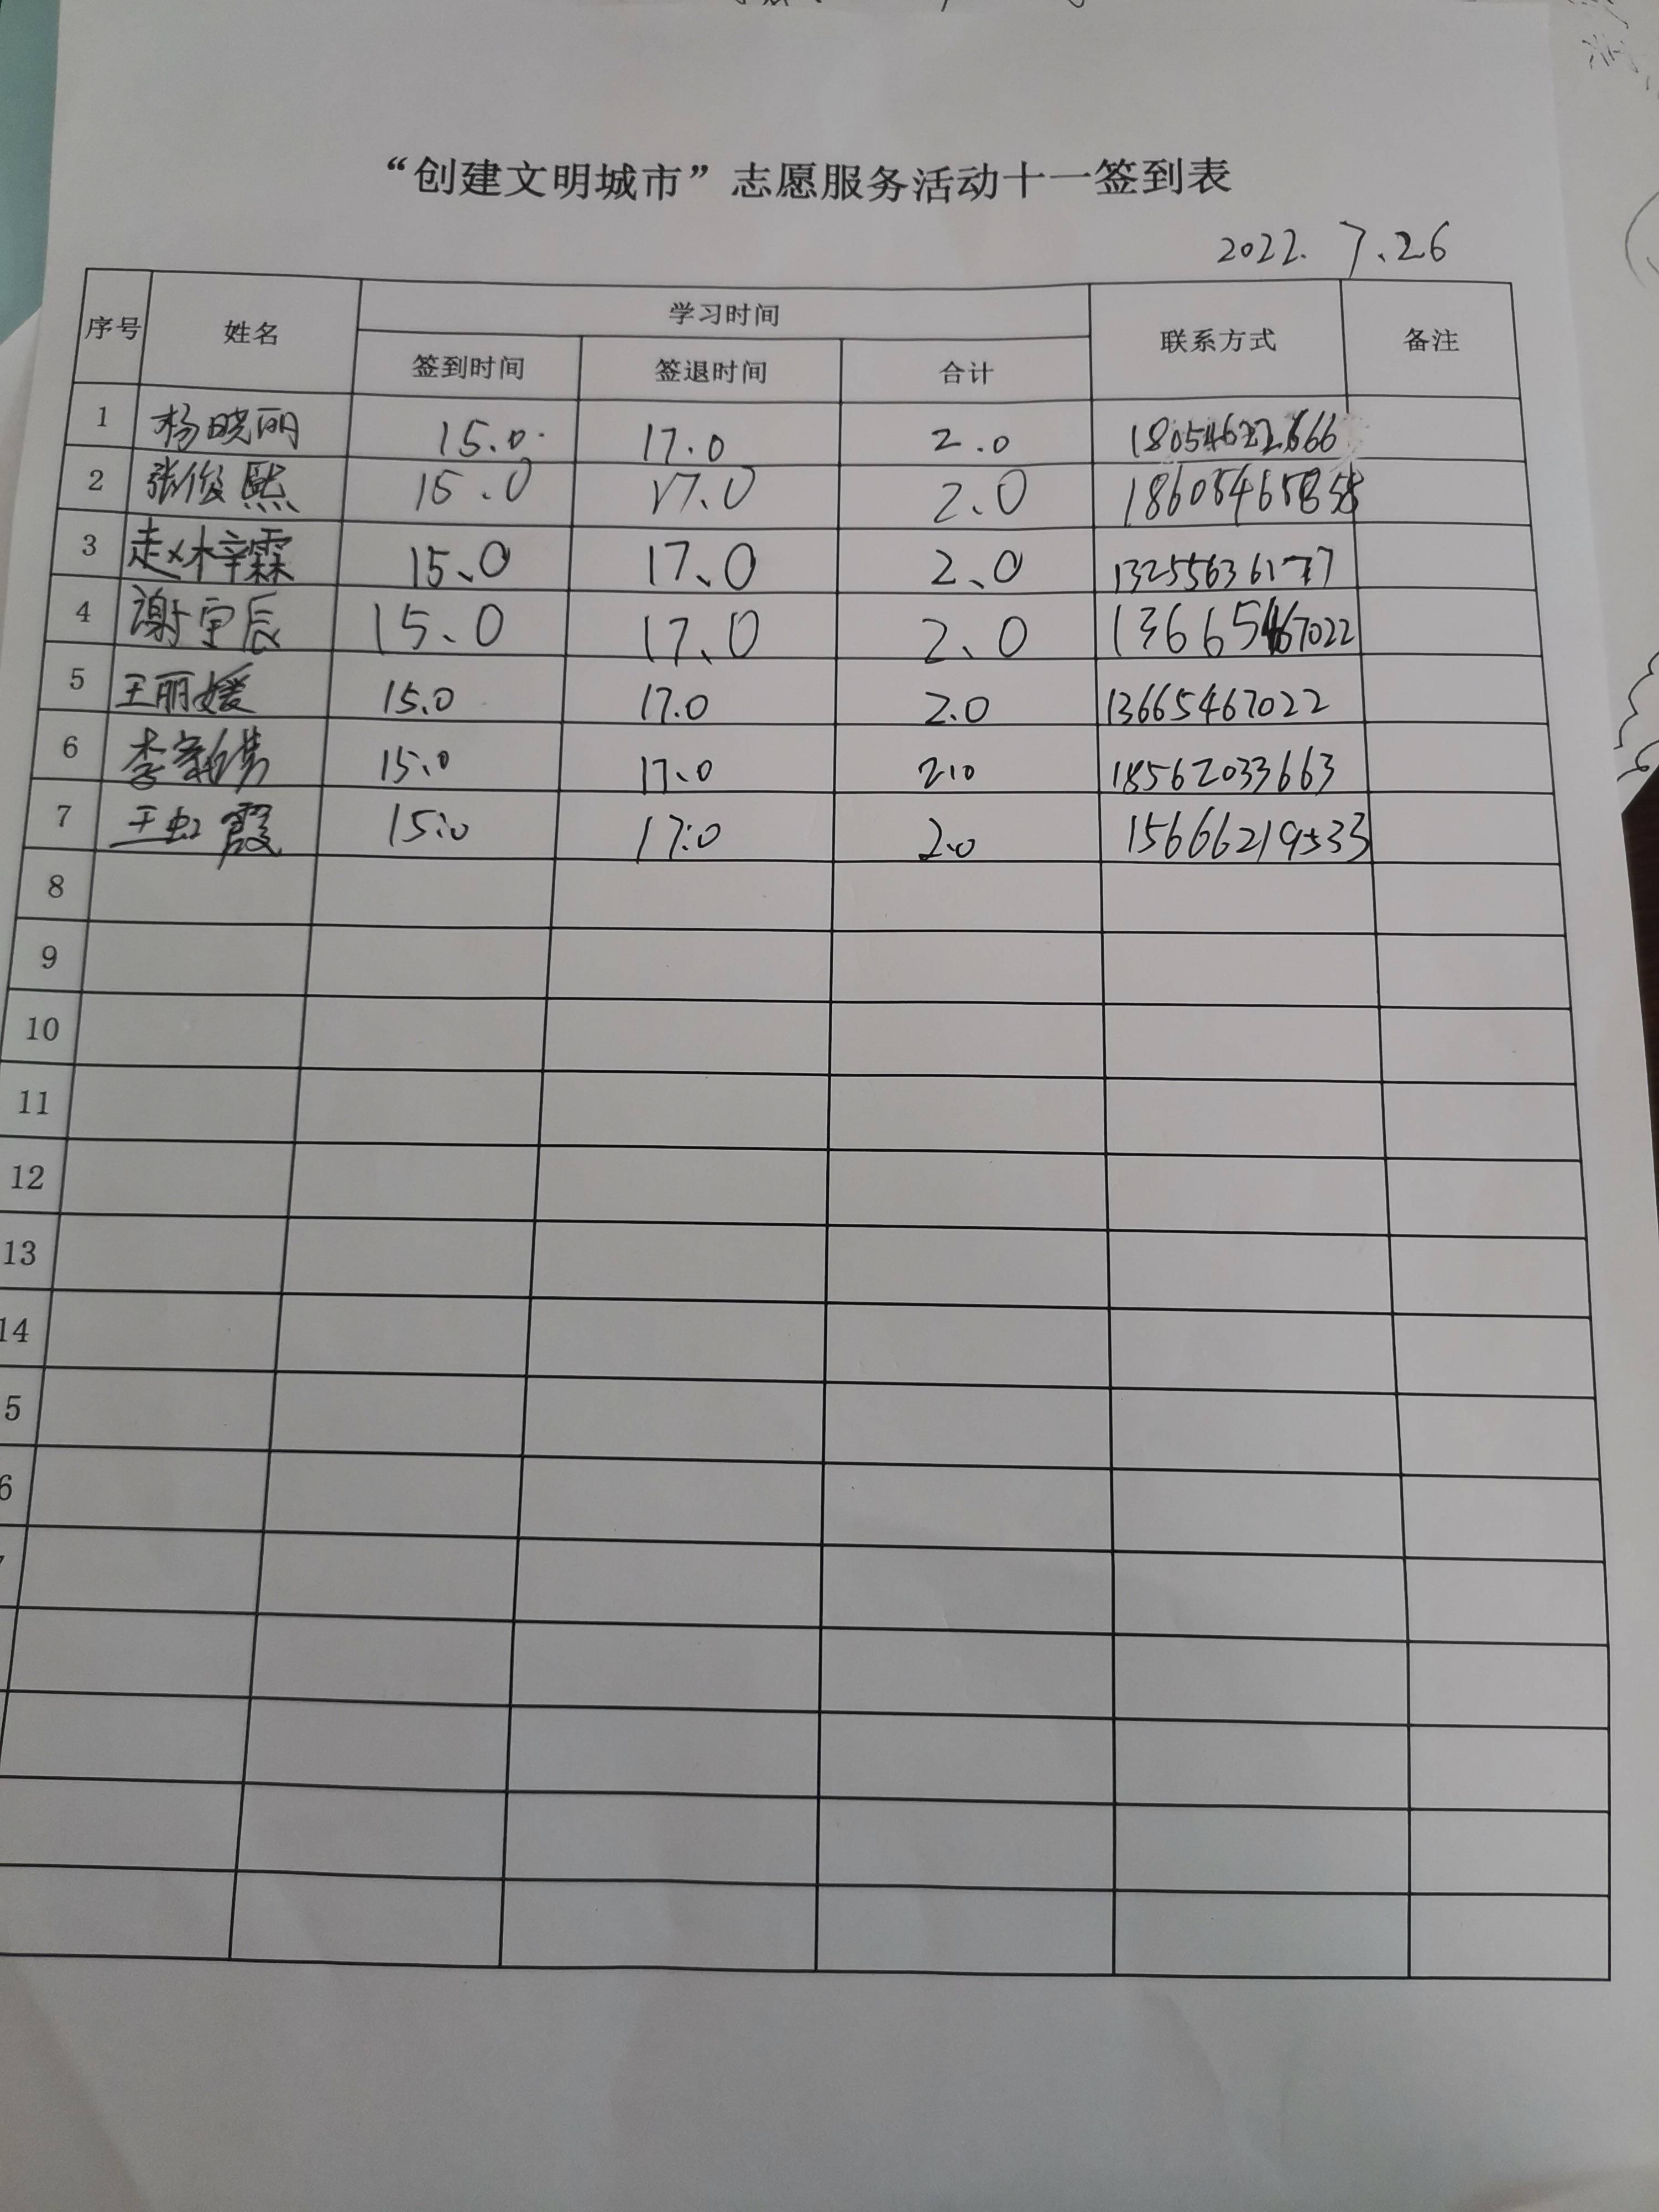 “创建文明城市”志愿服务活动十一签到表
2022. 7.26
序号 姓名 学习时间 联系方式 备注
签到时间 签退时间 合计
1 杨晓丽 15.0 17.0 2.0
2 张俊熙 15.0 17.0 2.0
3 赵梓霖 15.0 17.0 2.0 13255636177
4 谢宇辰 15.0 17.0 2.0 13665467022
5 王丽媛 15.0 17.0 2.0 13665467022
6 李 15.0 17.0 2.0 18562033663
7 王虹霞 15:0 17:0 2.0 15666219533
8
9
10
11
12
13
14
5
6